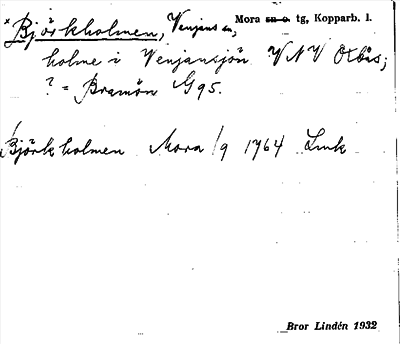 *Björkholmen, Venjans sn, Mora sn o. tg, Kopparb. l.
holme i Venjansjön VNV Oxbås;
? = Bramön G95.
Björkholmen Mora /9 1764 Lmk
Bror Lindén 1932